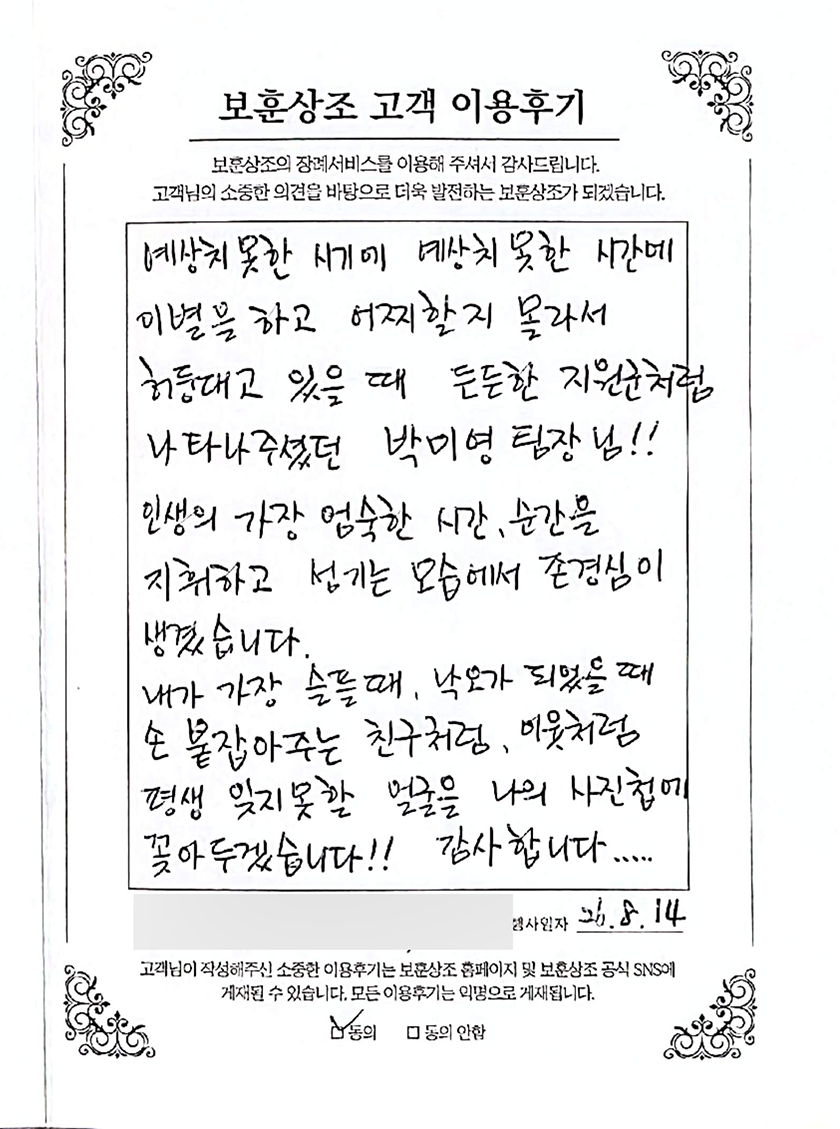 보훈상조 고객 이용후기
보훈상조의 장례서비스를 이용해 주셔서 감사드립니다.
고객님의 소중한 의견을 바탕으로 더욱 발전하는 보훈상조가 되겠습니다.
예상치 못한 시기에 예상치 못한 시간에
이별을 하고 어찌할지 몰라서
허둥대고 있을 때 든든한 지원군처럼
나타나주셨던 박미영 팀장님!!
인생의 가장 엄숙한 시간, 순간을
지휘하고 섬기는 모습에서 존경심이
생겼습니다.
내가 가장 슬플때, 낙오가 되었을 때
손 붙잡아주는 친구처럼, 이웃처럼
평생 잊지못할 얼굴을 나의 사진첩에
꽂아두겠습니다!! 감사합니다.....
행사일자 26.8.14
고객님이 작성해주신 소중한 이용후기는 보훈상조 홈페이지 및 보훈상조 공식 SNS에
게재될 수 있습니다. 모든 이용후기는 익명으로 게재됩니다.
동의 동의 안함